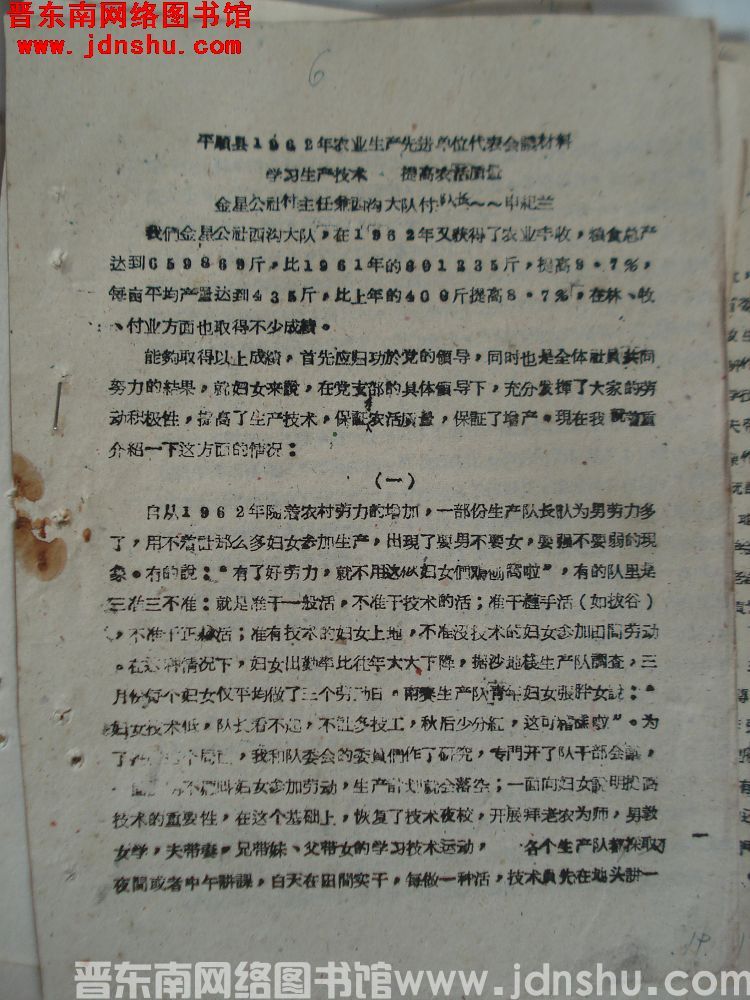 晋东南网络图书馆
www.jdnshu.com
6
平順县1962年农业生产先进单位代表会議材料
学习生产技术 提高农活质量
金星公社村主任兼西沟大队付队长～～申紀兰
我們金星公社西沟大队，在1962年又获得了农业丰收，粮食总产
达到659869斤，比1961年的601235斤，提高9·7%，
每亩平均产量达到435斤，比上年的400斤提高8·7%，在林、牧
、付业方面也取得不少成績。
能夠取得以上成績，首先应归功於党的領导，同时也是全体社員共同
努力的結果，就妇女来說，在党支部的具体領导下，充分发揮了大家的劳
动积极性，提高了生产技术，保証农活质量，保証了增产。現在我就着重
介紹一下这方面的情况：
（一）
自从1962年随着农村劳力的增加，一部份生产队长认为男劳力多
了，用不着让那么多妇女参加生产，出現了要男不要女，要强不要弱的現
象。有的說："有了好劳力，就不用这伙妇女們 啦"，有的队里是
三准三不准：就是准干一般活，不准干技术的活；准干 手活（如拔谷）
，不准干正 活；准有技术的妇女上地，不准没技术的妇女参加田間劳动
。在这种情况下，妇女出勤率比往年大大下降，据沙地栈生产队調查，三
月份每个妇女仅平均做了三个劳动日，南賽生产队青年妇女張胖女說："
妇女技术低，队长看不起，不让多技工，秋后少分紅，这可 啦"。为
了 ，我和队委会的委員們作了研究，专門开了队干部会議，
妇女参加劳动，生产計划就会落空；一面向妇女說明提高
技术的重要性，在这个基础上，恢复了技术夜校，开展拜老农为师，男教
女学，夫带妻，兄带妹、父带女的学习技术运动， 各个生产队都采取
夜間或者中午講課，白天在田間实干，每做一种活，技术員先在地头講一
晋东南网络图书馆www.jdnshu.com